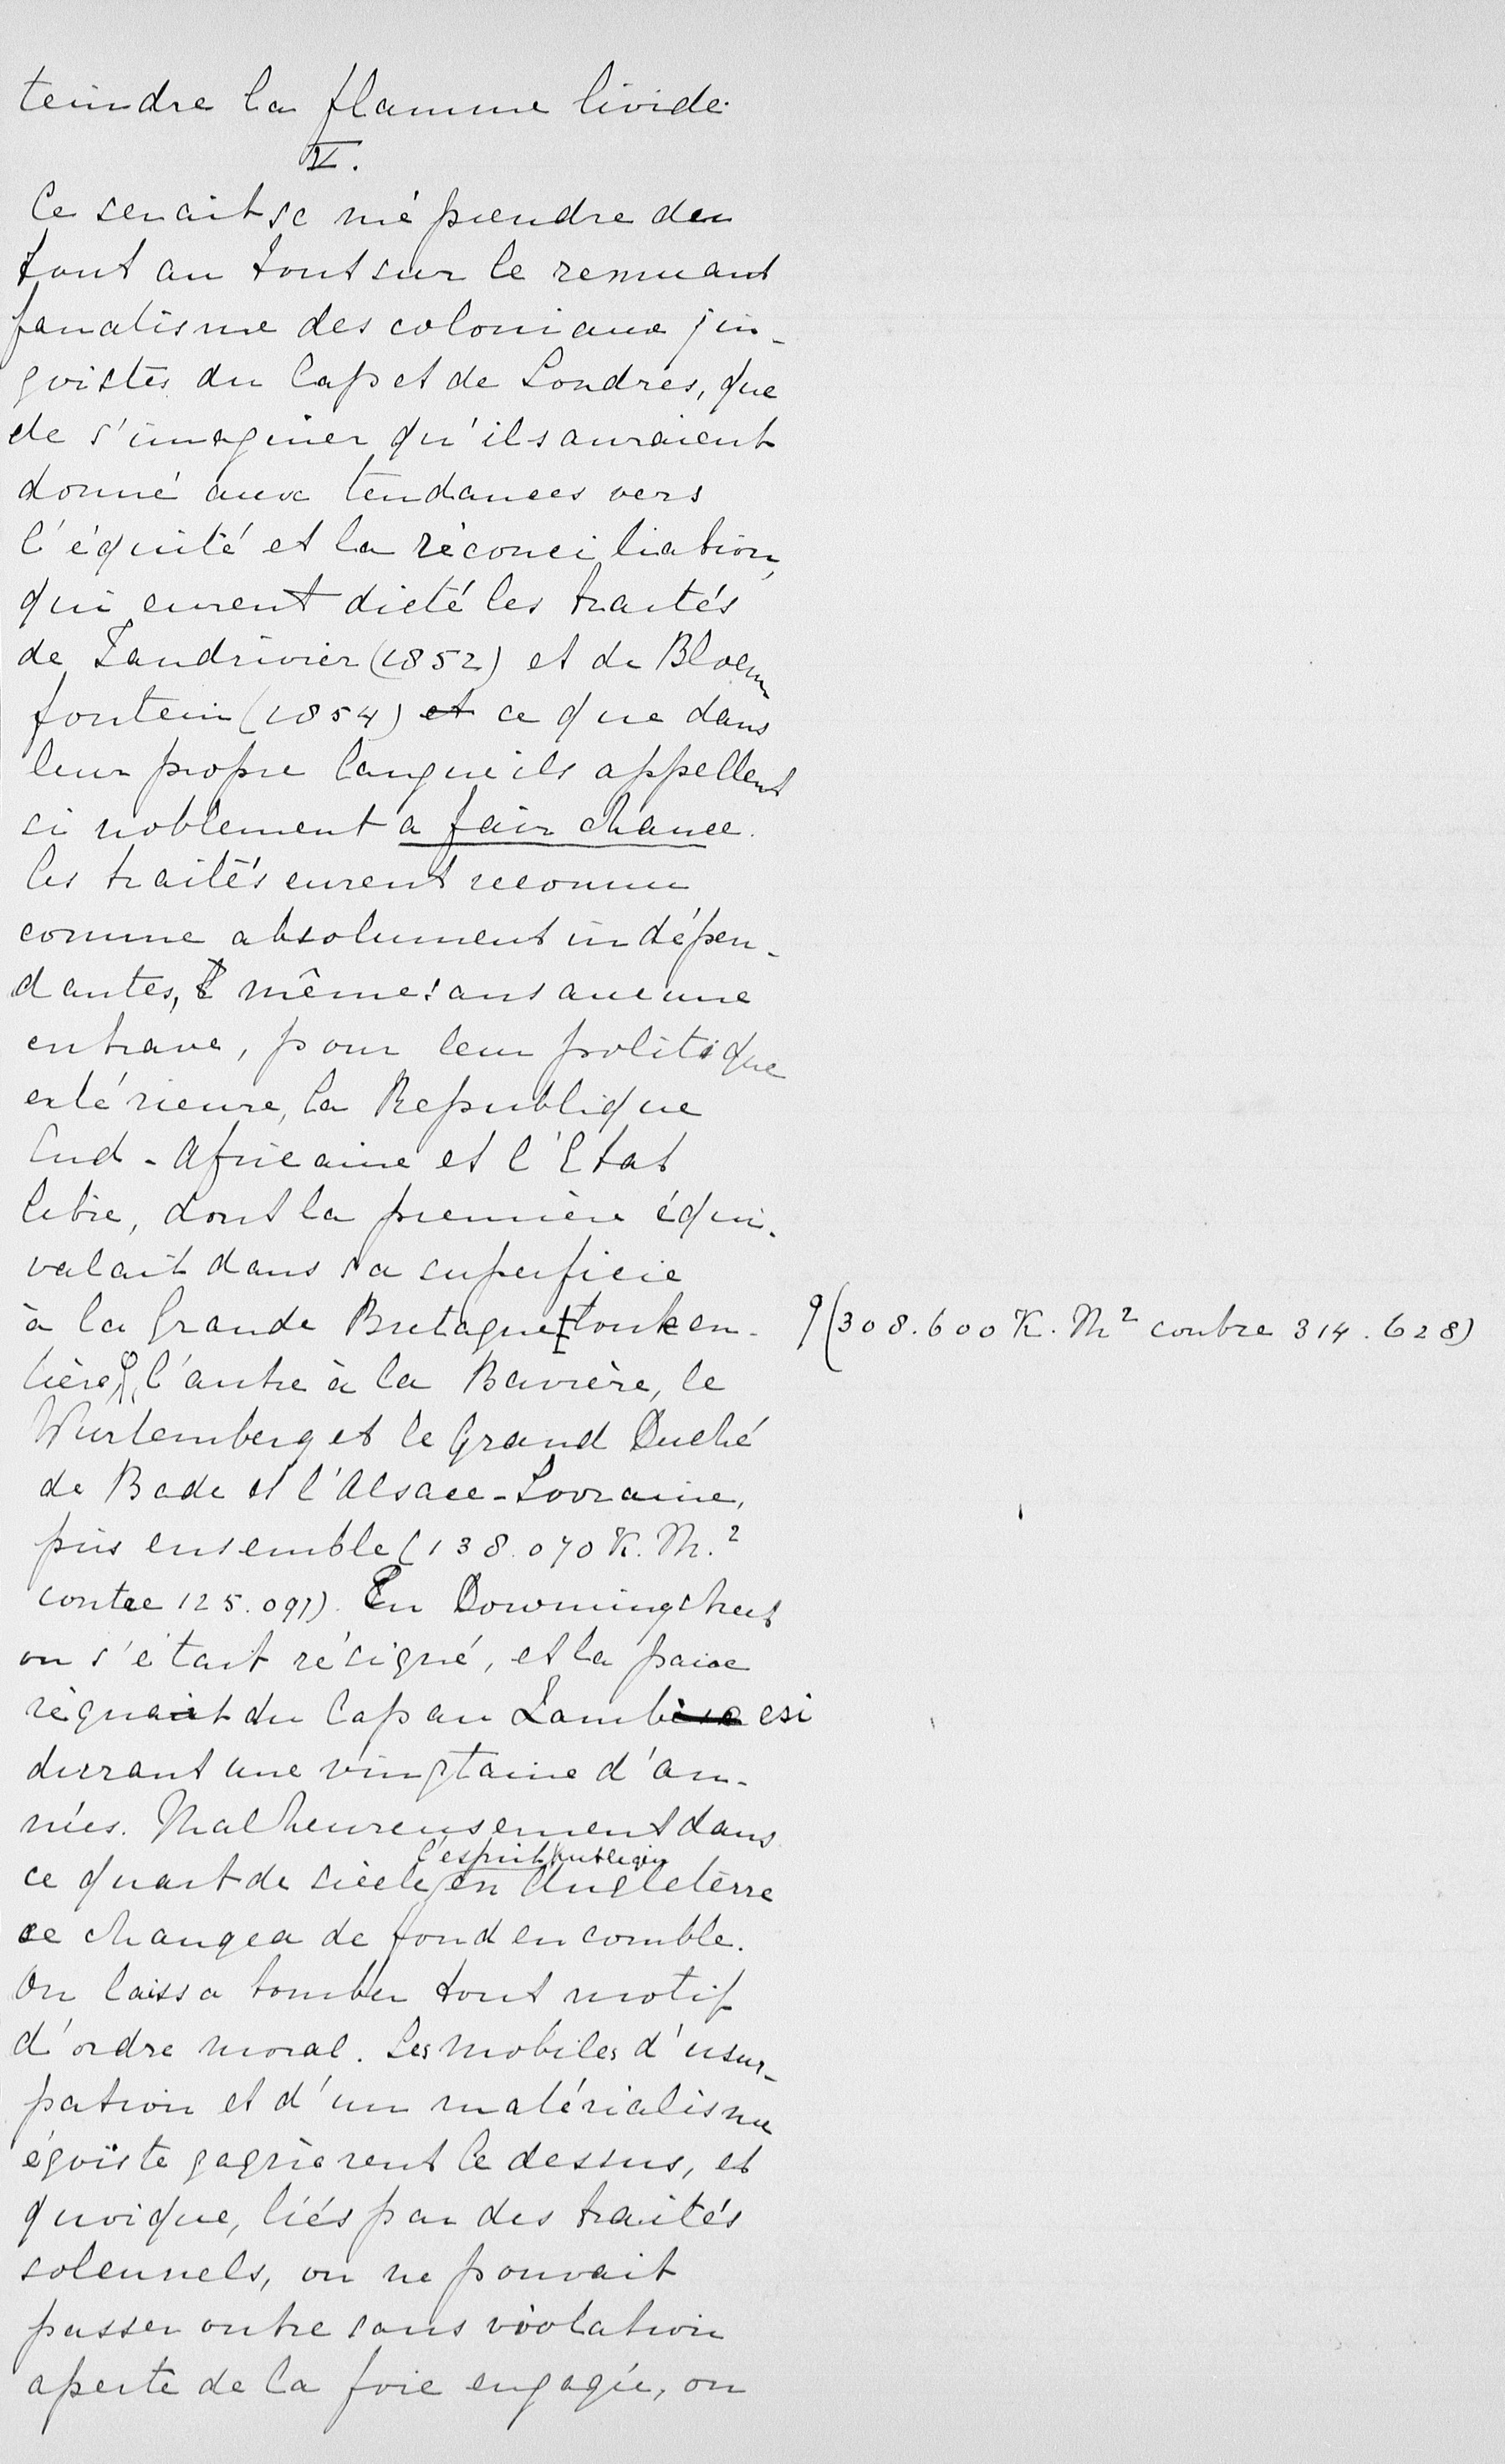 teindre la flamme livide.
V.
Ce serait se méprendre du
tout au tout sur le remuant
fanatisme des coloniaux jin-
goistes du Cap et de Londres, que
de s'imaginer qu'ils auraient
donné aux tendances vers
l'équité et la réconciliation,
qui eurent dicté les traités
de Zandrivier (1852) et de Bloem
fontein (1854) et ce que dans
leur propre langue ils appellent
si noblement a fair chance.
Ces traités eurent reconnu
comme absolument indépen-
dantes, & même sans aucune
entrave, pour leur politique
extérieure, la Republique
Sud-Africaine et l'Etat
libre, dont la première équi-
valait dans sa superficie
à la Grande Bretagne tout en-
tière, l'autre à la Bavière, le
(308.600 K.M² contre 314.628)
Wurtemberg et le Grand Duché
de Bade et l'Alsace-Lorraine,
pris ensemble (138.070 K.M.²
contre 125.091). En Downingstreet
on s'était résigné, et la paix
régnait du Cap au Zambesi
durant une vingtaine d'an-
nées. Malheureusement dans
ce quart de siècle l'esprit public en Angleterre
se changea de fond en comble.
On laissa tomber tout motif
d'ordre moral. Les mobiles d'usur-
pation et d'un matérialisme
égoïste gagnèrent le dessus, et
quoique, liés par des traités
solennels, on ne pouvait
passer outre sans violation
aperte de la foie engagée, on